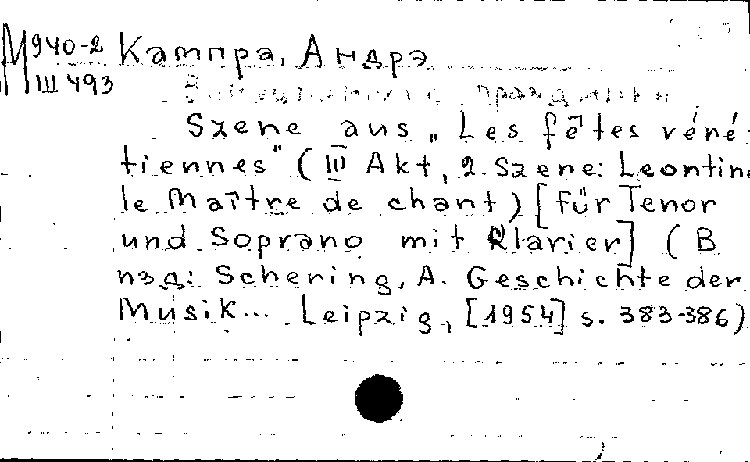 М 940-2 Кампра, Андрэ
III 493
праздники
Szene aus „Les fêtes véné-
tiennes" (III Akt, 2. Szene: Leontin,
le Maître de chant) [Für Tenor
und Soprano mit Klavier] (В
изд: Schering, A. Geschichte der
Musik... Leipzig, [1954] s. 383-386)